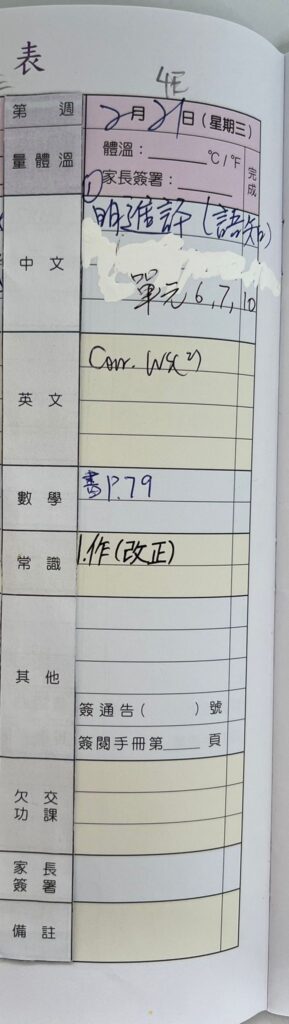 表
4E
第 週 2月21日(星期三)
量體溫 體溫:______°C/°F 完成
家長簽署:______
中文 ①明進評(語知)
單元6,7,10
英文 Corr. WS(2)
數學 書P.79
常識 1.作(改正)
其他
簽通告( )號
簽閱手冊第____頁
欠交功課
家長簽署
備註